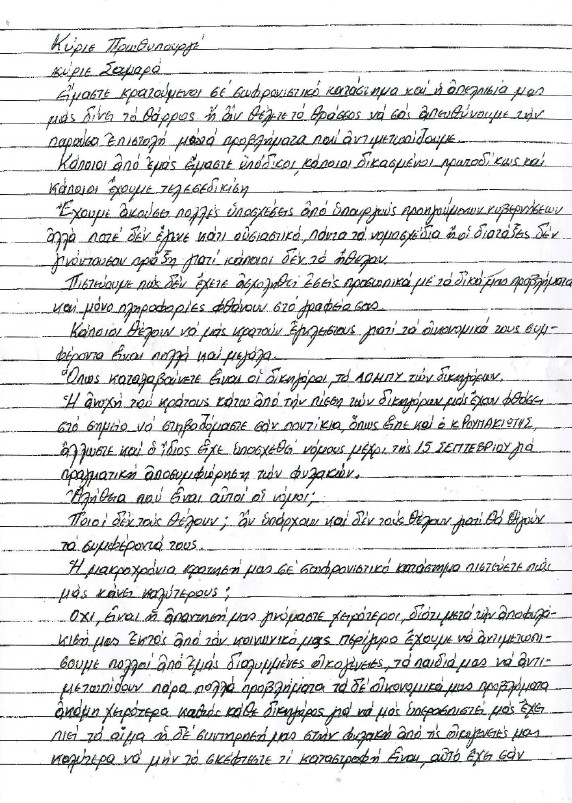 Κύριε Πρωθυπουργέ
κύριε Σαμαρά
Εἴμαστε κρατούμενοι σέ σωφρονιστικό κατάστημα καί ἡ ἀπελπισία μας
μᾶς δίνει τό θάρρος ἤ ἄν θέλετε τό θράσσος νά σᾶς ἀπευθύνουμε τήν
παρούσα ἐπιστολή μέ τά προβλήματα πού ἀντιμετωπίζουμε.
Κάποιοι ἀπό ἐμᾶς εἴμαστε ὑπόδικοι, κάποιοι δικασμένοι πρωτοδίκως καί
κάποιοι ἔχουμε τελεσεδικίση
Ἔχουμε ἀκούσει πολλές ὑποσχέσεις ἀπό ὑπουργούς προηγούμενων κυβερνήσεων
ἀλλά ποτέ δέν ἔγινε κάτι οὐσιαστικό, πάντα τά νομοσχέδια ἤ οἱ διατάξεις δέν
γινόντουσαν πράξη γιατί κάποιοι δέν τό ἤθελαν.
Πιστεύουμε πώς δέν ἔχετε ἀσχοληθεῖ ἐσεῖς προσωπικά μέ τά δικά μας προβλήματα
καί μόνο πληροφορίες φθάνουν στό γραφεῖο σας.
Κάποιοι θέλουν νά μᾶς κρατοῦν ἔγκλειστους γιατί τά οἰκονομικά τους συμ-
φέροντα εἶναι πολλά καί μεγάλα.
Ὅπως καταλαβαίνετε εἶναι οἱ δικηγόροι, τό ΛΟΜΠΥ τῶν δικηγόρων.
Ἡ ἀνοχή τοῦ κράτους κάτω ἀπό τήν πίεση τῶν δικηγόρων μᾶς ἔχουν φθάσει
στό σημεῖο νά στηβαδόμαστε σάν ποντίκια, ὅπως εἶπε καί ὁ κ ΡΟΥΠΑΚΙΩΤΗΣ,
ἄλλωστε καί ὁ ἴδιος εἶχε ὑποσχεθεῖ νόμους μέχρι τίς 15 ΣΕΠΤΕΒΡΙΟΥ γιά
πραγματική ἀποσυμφώρηση τῶν φυλακῶν.
Ἀλήθεια πού εἶναι αὐτοί οἱ νόμοι;
Ποιοι δέν τούς θέλουν; ἄν ὑπάρχουν καί δέν τούς θέλουν γιατί θά θιγοῦν
τά συμφέροντά τους.
Ἡ μακροχρόνια κράτησή μας σέ σωφρονιστικό κατάστημα πιστεύετε πώς
μᾶς κάνει καλύτερους;
Ὄχι, εἶναι ἡ ἀπάντησή μας γινόμαστε χειρότεροι, διότι μετά τήν ἀποφυλά-
κισή μας ἐκτός ἀπό τόν κοινωνικό μας περίγυρο ἔχουμε νά ἀντιμετωπί-
σουμε πολλοί ἀπό ἐμᾶς διαλυμμένες οἰκογένειες, τά παιδιά μας νά ἀντι-
μετωπίζουν πάρα πολλά προβλήματα τά δέ οἰκονομικά μας προβλήματα
ἀκόμη χειρότερα καθώς κάθε δικηγόρος γιά νά μᾶς ὑπερασπιστεῖ μᾶς ἔχει
πιεῖ τό αἷμα ἡ δέ συντήρησή μας στήν φυλακή ἀπό τίς οἰκογένειές μας
καλύτερα νά μήν τό σκέφτεστε τί καταστροφή εἶναι, αὐτό ἔχει σάν